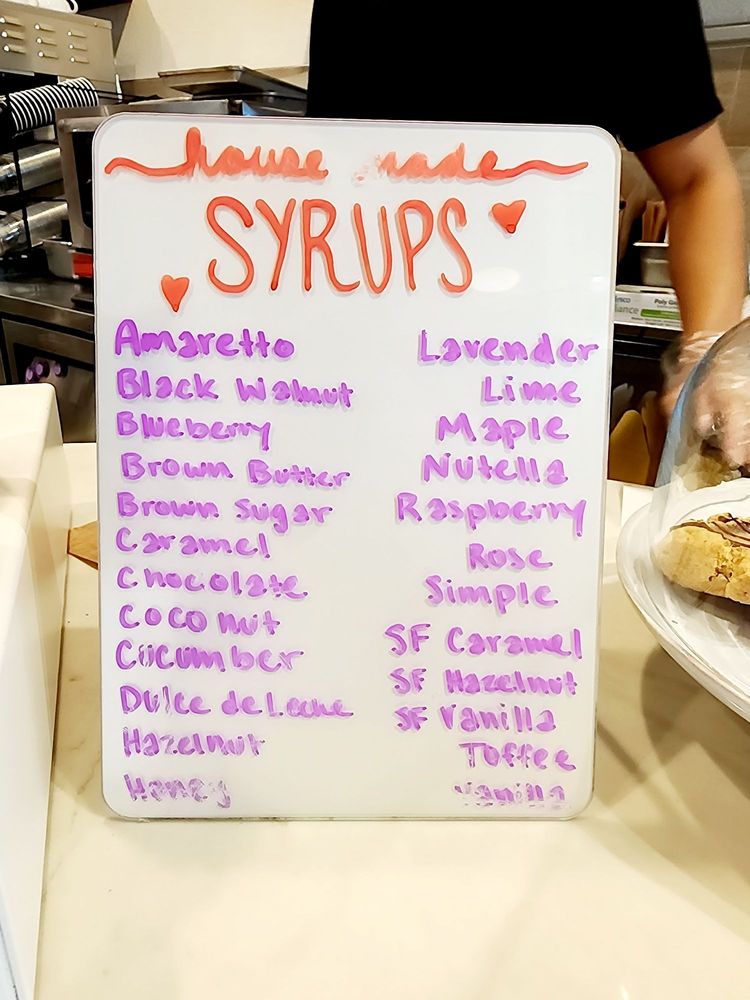 house made
SYRUPS
Amaretto
Black Walnut
Blueberry
Brown Butter
Brown Sugar
Caramel
Chocolate
Coconut
Cucumber
Dulce de Leche
Hazelnut
Honey
Lavender
Lime
Maple
Nutella
Raspberry
Rose
Simple
SF Caramel
SF Hazelnut
SF Vanilla
Toffee
Vanilla
Poly